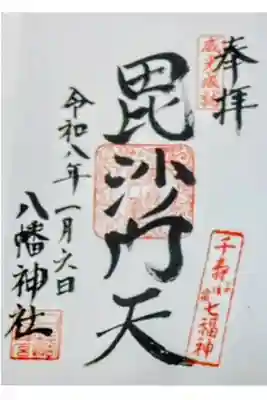 奉拝
毘沙門天
令和八年一月六日
八幡神社
千寿
七福神